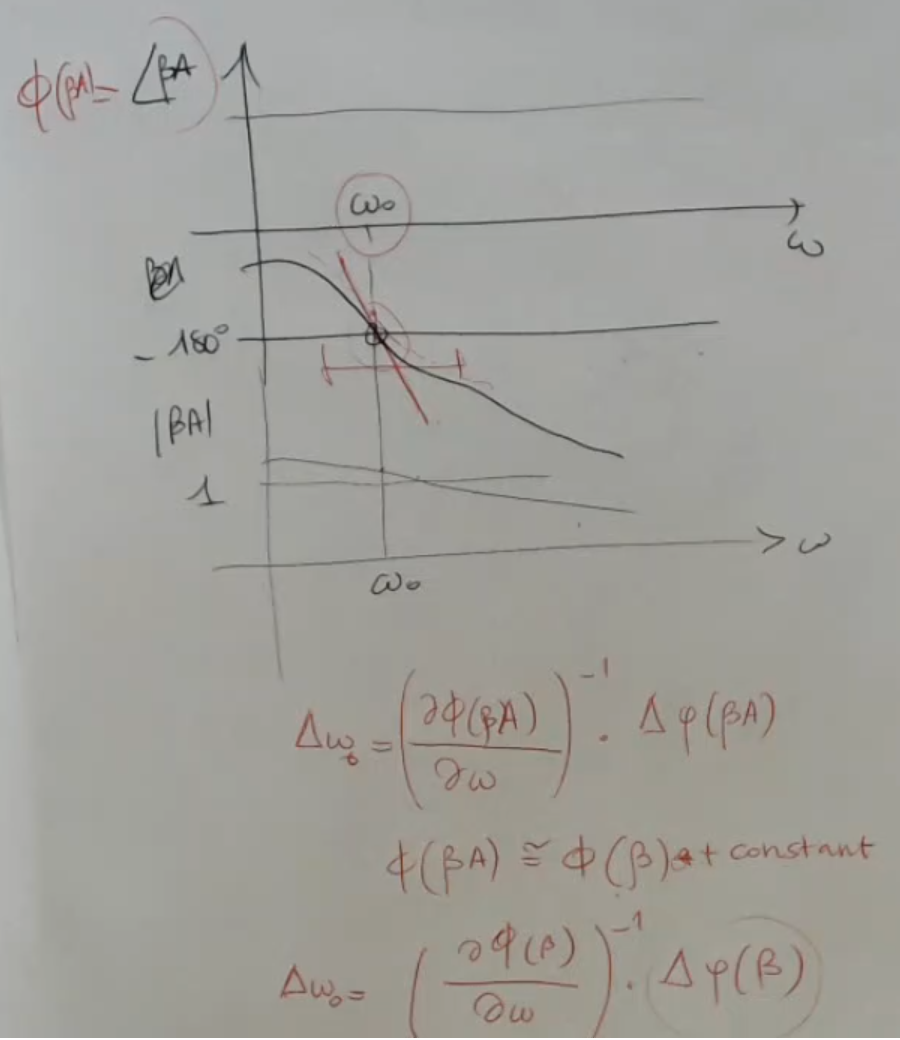 ϕ(βA) = ∠βA
ω₀
ω
βA
- 180°
|βA|
1
ω
ω₀
Δω₀ = (∂ϕ(βA)/∂ω)⁻¹ · Δφ(βA)
ϕ(βA) ≅ ϕ(β) + constant
Δω₀ = (∂ϕ(β)/∂ω)⁻¹ · Δφ(β)